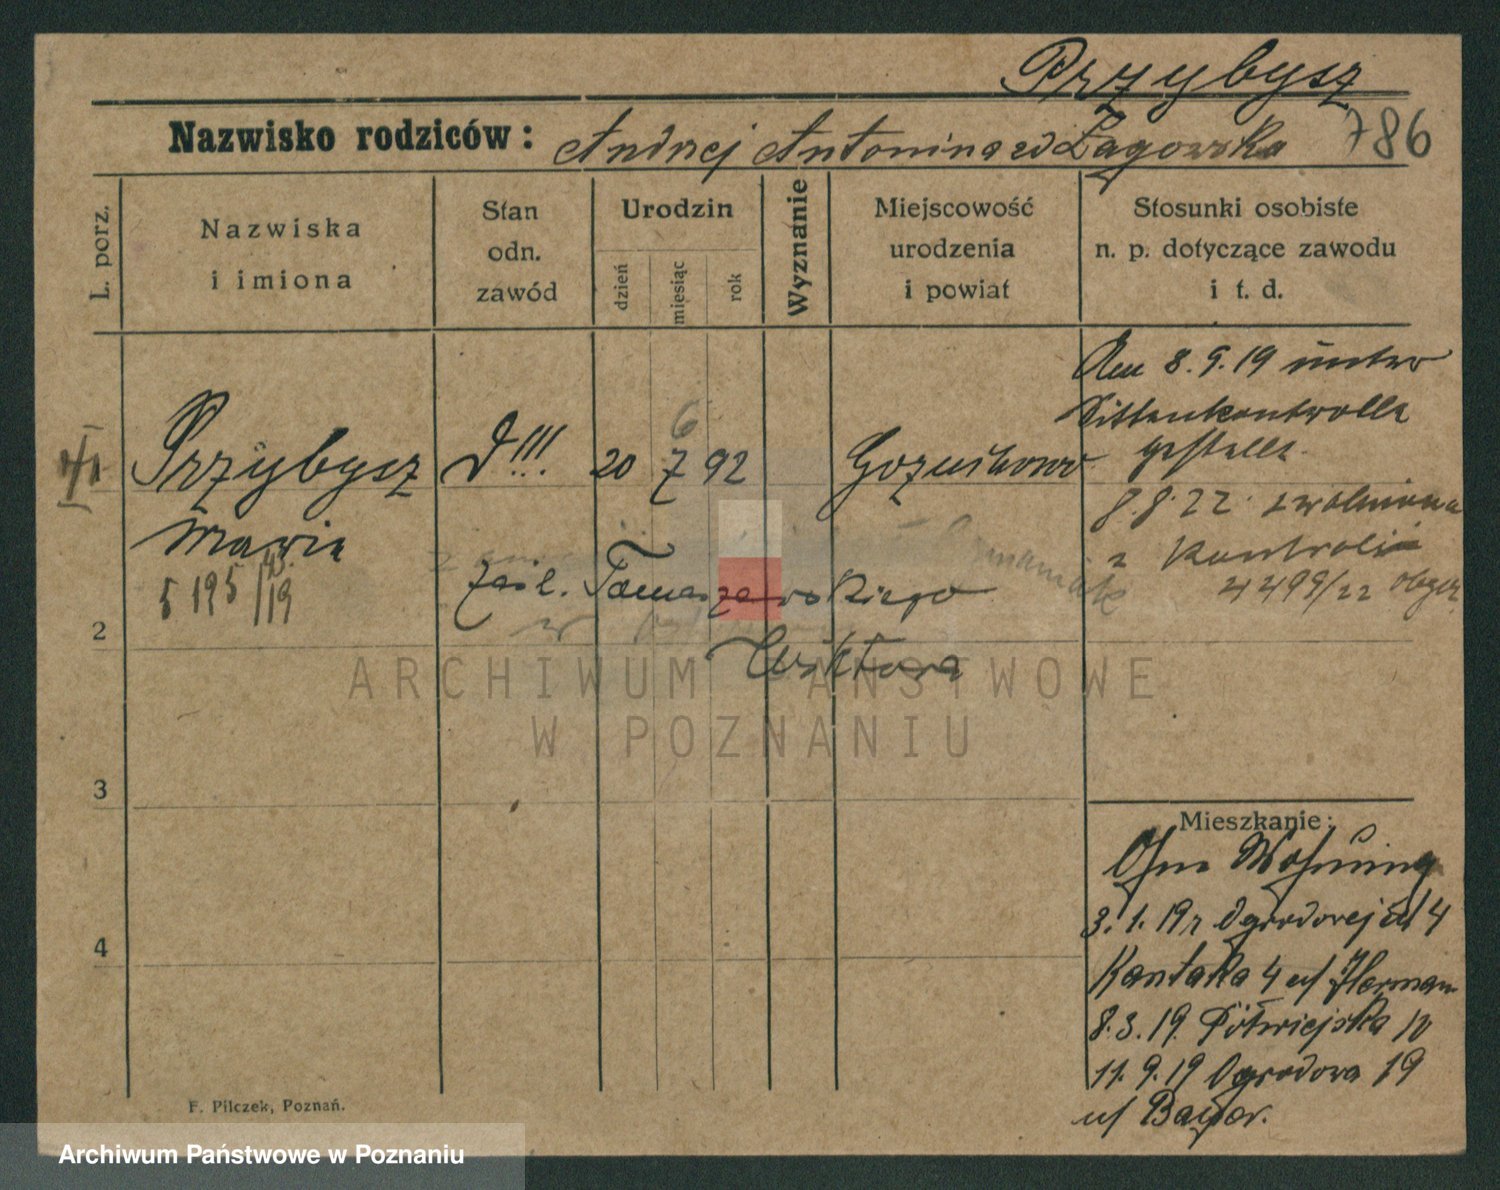 Przybysz
Nazwisko rodziców: Andrzej Antonina zd Łagowska 786
L. porz.
Nazwiska
i imiona
Stan
odn.
zawód
Urodzin
dzień
miesiąc
rok
Wyznanie
Miejscowość
urodzenia
i powiat
Stosunki osobiste
n. p. dotyczące zawodu
i t. d.
Przybysz
Maria
5 195/19
d!!!
20 7 92
6
Am 8.9.19 unter
Sittenkontrolle
gestellt.
8.8.22. zwolniona
z Kontroli
4499/22
zaśl. Tomaszewskiego
Wiktora
2
3
4
Mieszkanie:
Ohne Wohnung
3.1.19 r Ogrodowej 4
Kantaka 4 u/ Herman
8.3.19. Półwiejska
11.9.19 Ogrodowa 19
u/ Bayer.
F. Pilczek, Poznań.
ARCHIWUM PAŃSTWOWE
W POZNANIU
Archiwum Państwowe w Poznaniu